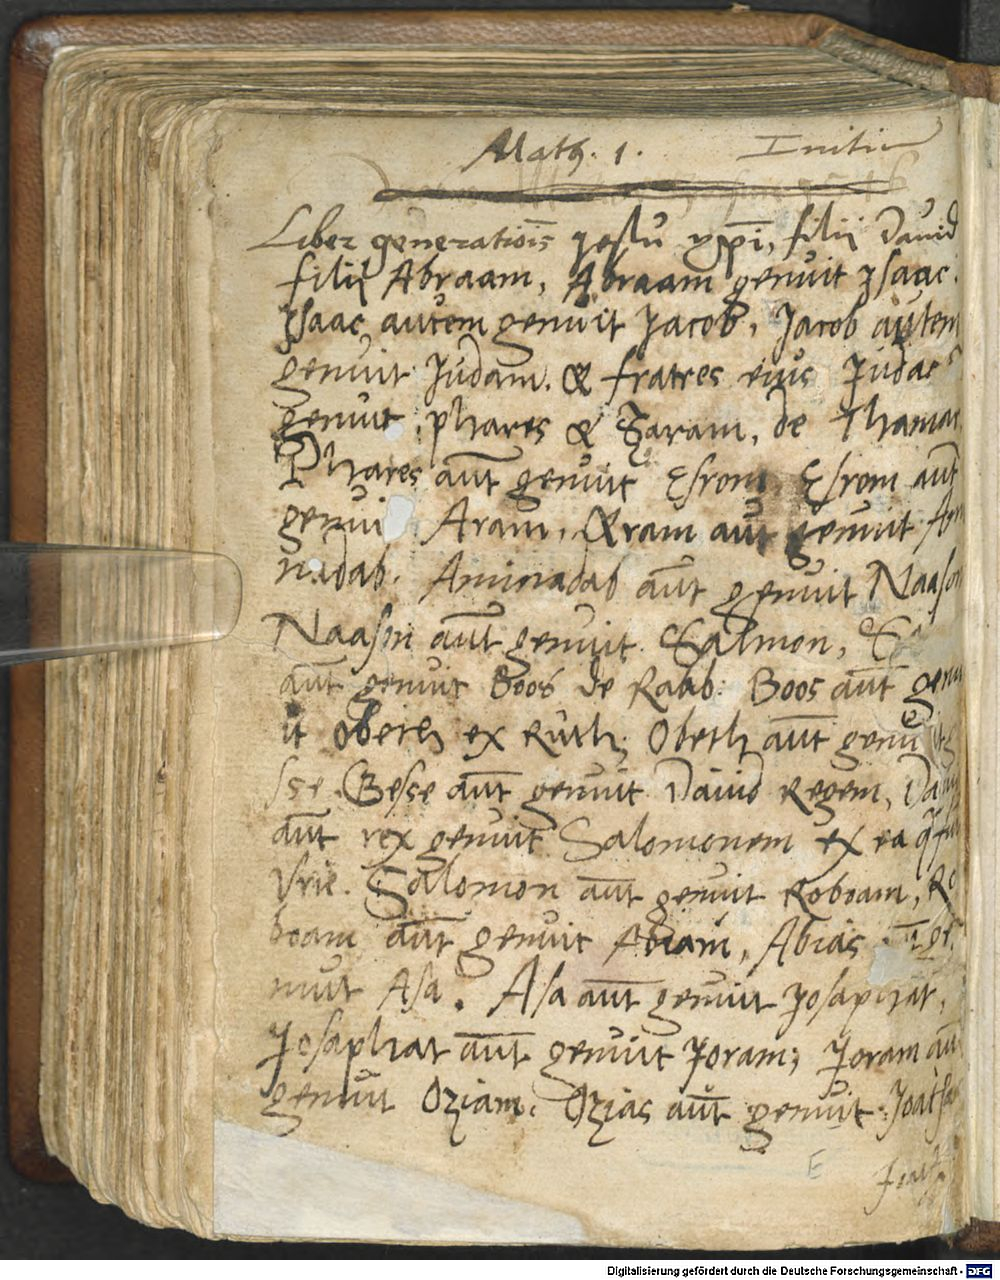 Math. 1. Initiu
Liber generatiōis Jesu xp̄i, filii David
filii Abraam, Abraam genuit Isaac.
Isaac autem genuit Jacob, Jacob autem
genuit Judam. & fratres eius Judas
genuit phares & Zaram, de Thamar
Phares aūt genuit Esrom Esrom aūt
genui Aram, Aram aūt genuit Am
nadab. Aminadab aūt genuit Naason
Naason aūt genuit Salmon, Sa
aūt genuit Boos de Raab. Boos aūt genu
it obeth ex Ruth, Obeth aūt genu
sse. Gesse aūt genuit David Regem, Davi
aūt rex genuit Salomonem ex ea
Vrie. Salomon aūt genuit Roboam, Ro
boam aūt genuit Abiam, Abias ge
nuit Asa. Asa aūt genuit Josaphat,
Josaphat aūt genuit Joram, Joram aūt
genuit Oziam. Ozias aūt genuit Joatha
E
Digitalisierung gefördert durch die Deutsche Forschungsgemeinschaft - DFG